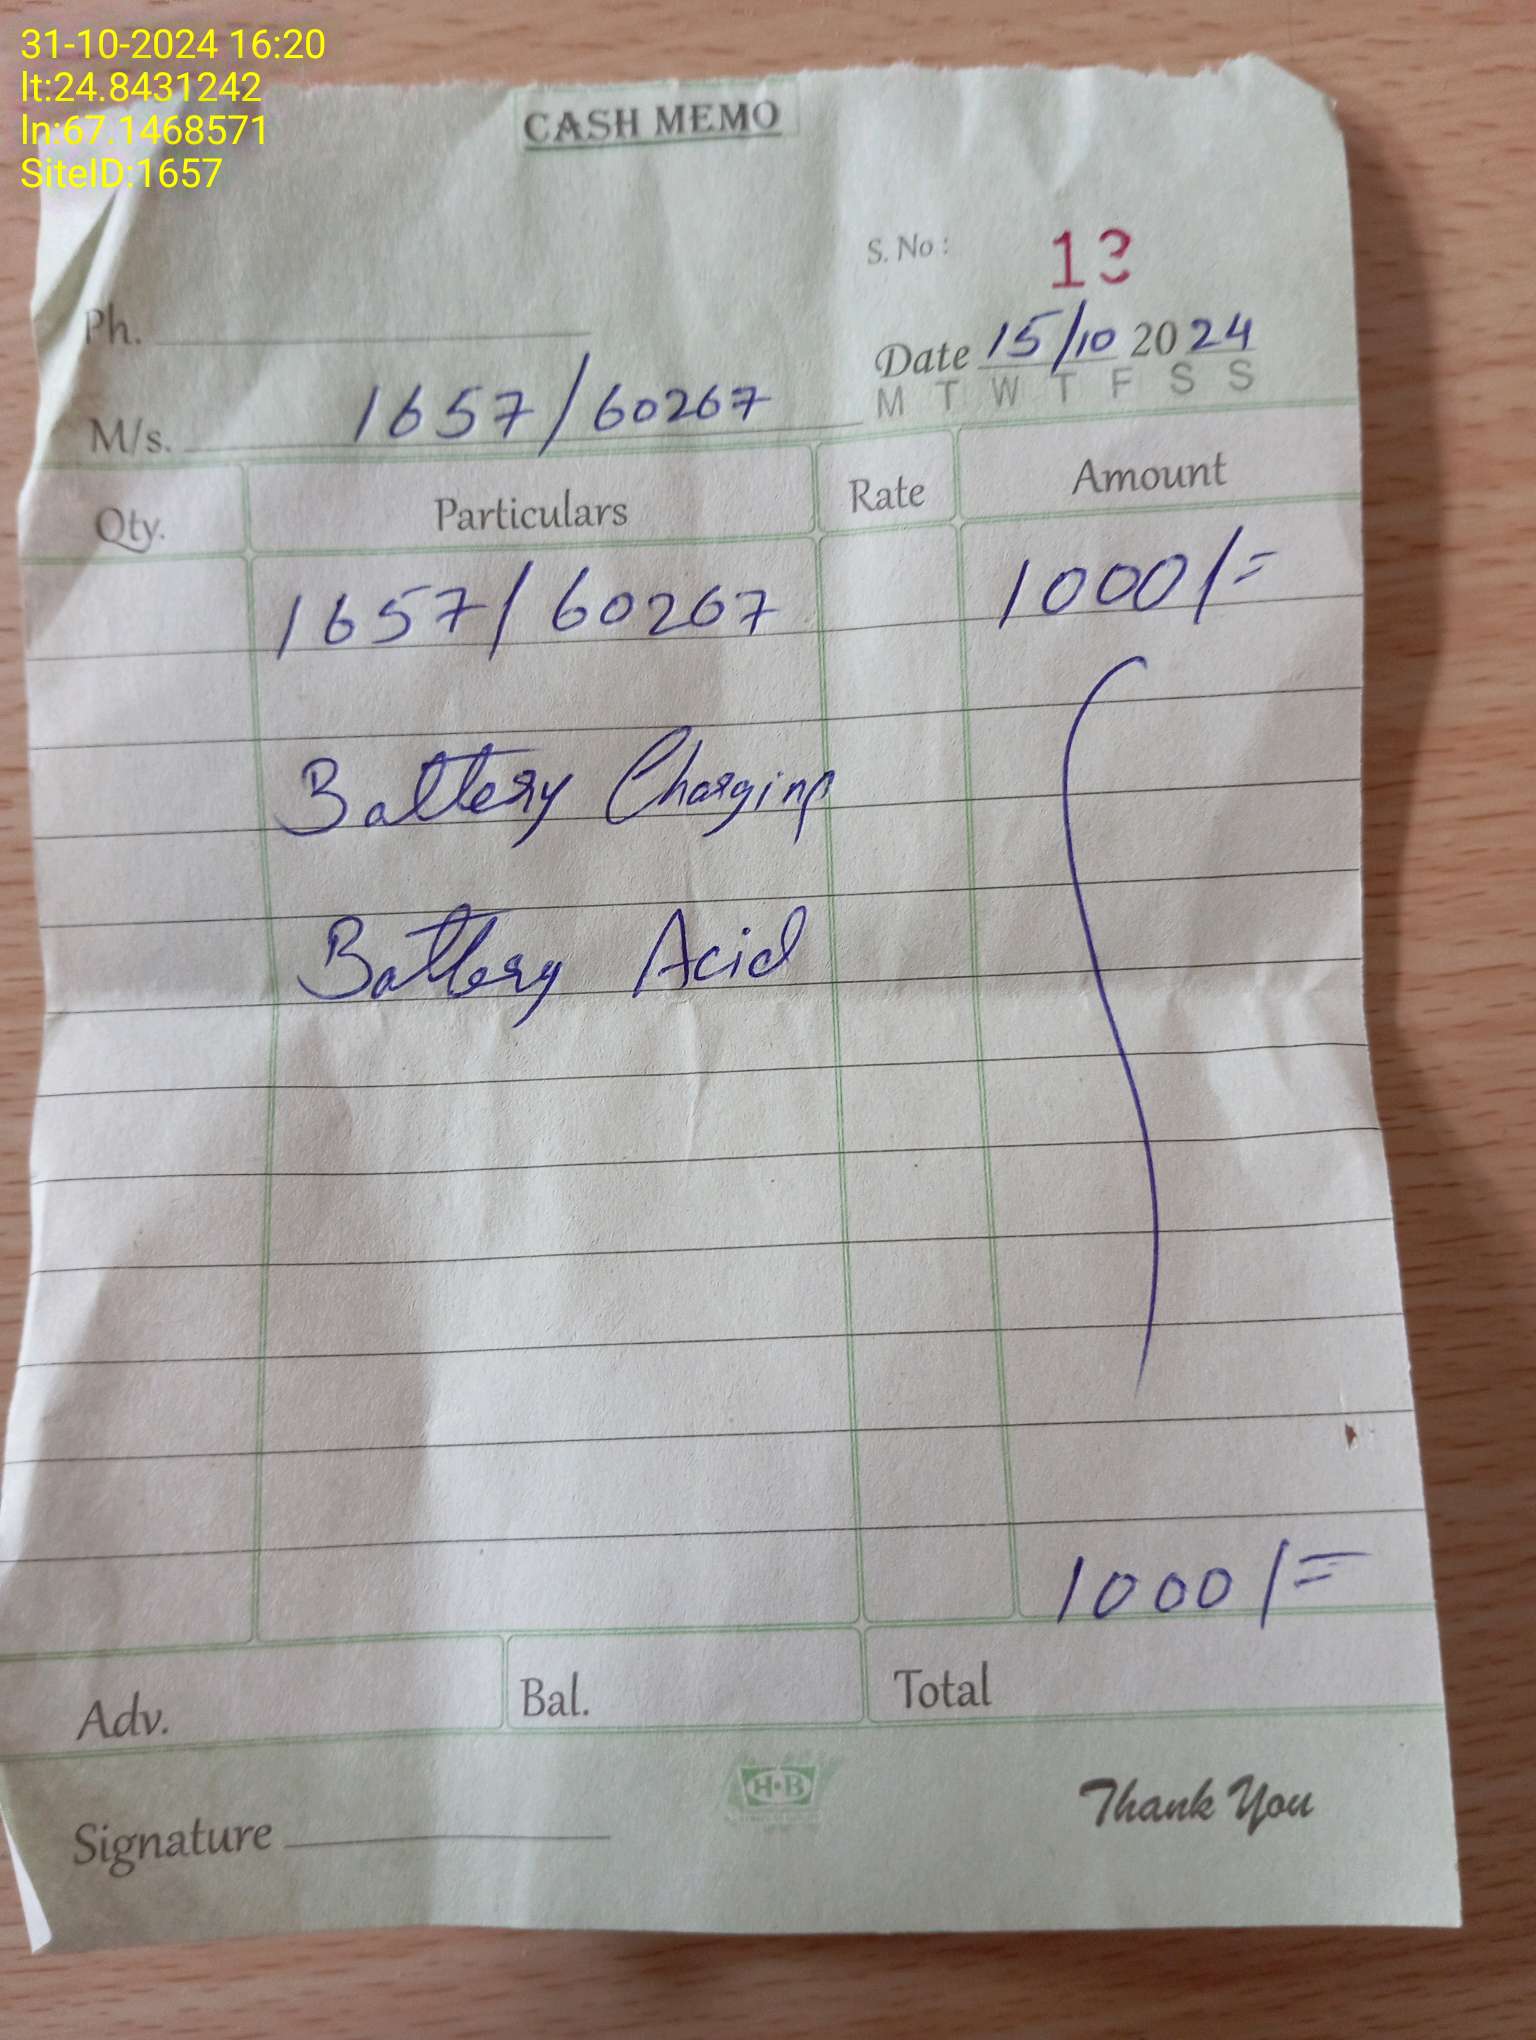 31-10-2024 16:20
lt:24.8431242
ln:67.1468571
SiteID:1657
CASH MEMO
S. No : 13
Ph.
Date 15/10 2024
M T W T F S S
M/s. 1657/60267
Qty. Particulars Rate Amount
1657/60267 1000/=
Battery Charging
Battery Acid
1000/=
Adv. Bal. Total
H·B
Signature Thank You